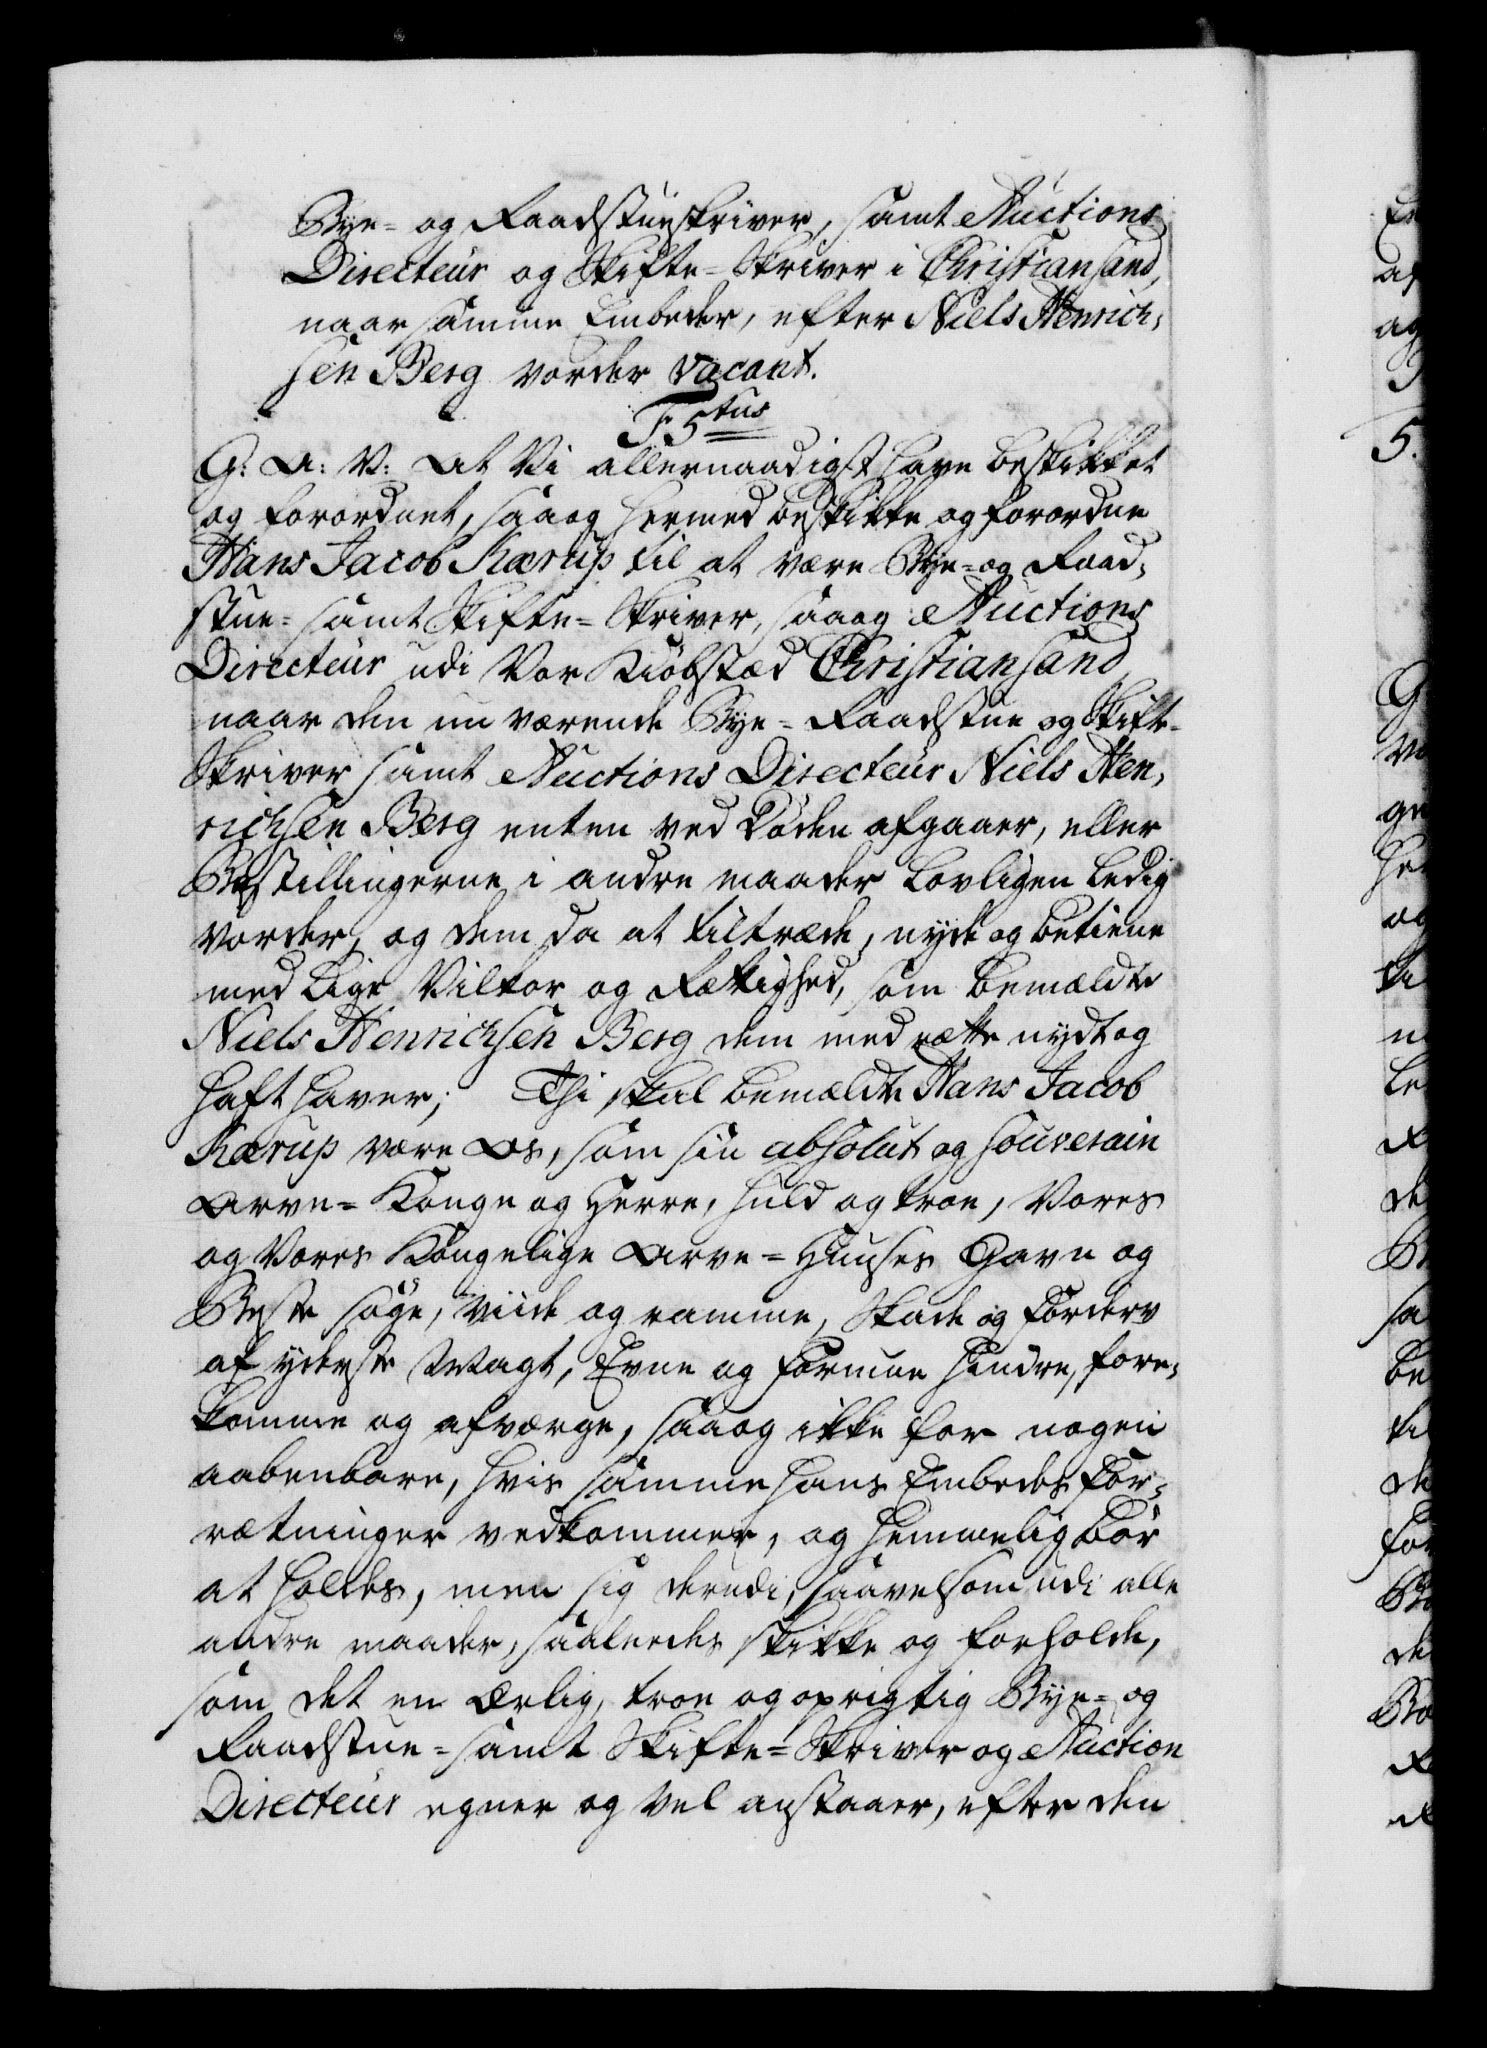 Bye- og Raadstueskriver, samt Auctions
Directeur og Skifte-Skriver i Christiansand,
naar samme Embeder, efter Niels Henrich-
sen Berg vorder vacant.
F. 5tus
G: A: V: At Vi allernaadigst have beskikket
og forordnet, saa og hermed beskikke og forordne
Hans Jacob Kærup til at være Bye- og Raad-
stue- samt Skifte-Skriver, saa og Auctions
Directeur udi Vor Kiøbstæd Christiansand
naar den nu værende Bye- Raadstue og Skifte-
Skriver samt Auctions Directeur Niels Hen-
richsen Berg enten ved Døden afgaaer, eller
Bestillingerne i andre maader lovligen ledig
vorder, og dem da at tiltræde, nyde og betiene
med lige Vilkor og Rettighed, som bemældte
Niels Henrichsen Berg dem med rætte nydt og
haft haver; Thi skal bemældte Hans Jacob
Kærup være Os, som sin absolut og souverain
Arve-Konge og Herre, huld og troe, Vores
og Vores Kongelige Arve-Huuses Gavn og
Beste søge, viide og ramme, Skade og Forderv
af yderste Magt, Evne og Formue hindre, fore-
komme og afværge, saa og ikke for nogen
aabenbare, hvis samme hans Embedes For-
rætninger vedkommer, og hemmelig bør
at holdes, men sig derudi, saavelsom udi alle
andre maader, saaledes skikke og forholde,
som det en ærlig, troe og oprigtig Bye- og
Raadstue- samt Skifte-Skriver og Auction
Directeur egner og vel anstaaer, efter den